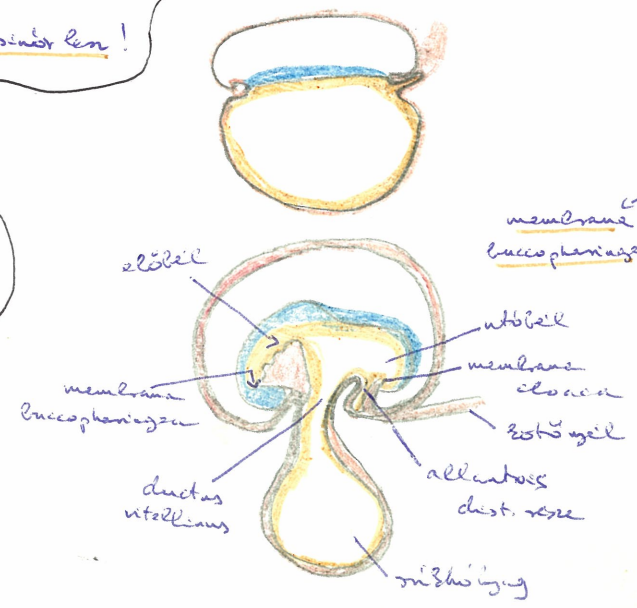 zsinór lesz!
membrana
buccopharingea
előbél
utóbél
membrana
cloaca
membrana
buccopharingea
kötőnyél
allantois
dist. része
ductus
vitellinus
szikhólyag